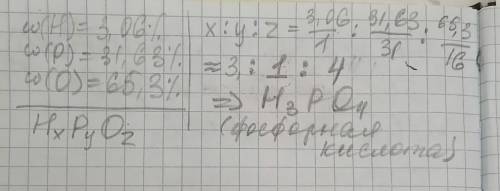 ω(H)=3,06%
ω(P)=31,63%
ω(O)=65,3%
HxPyOz
x:y:z = 3,06/1 : 31,63/31 : 65,3/16
≈3 : 1 : 4
=> H₃PO₄
(фосфорная
кислота)